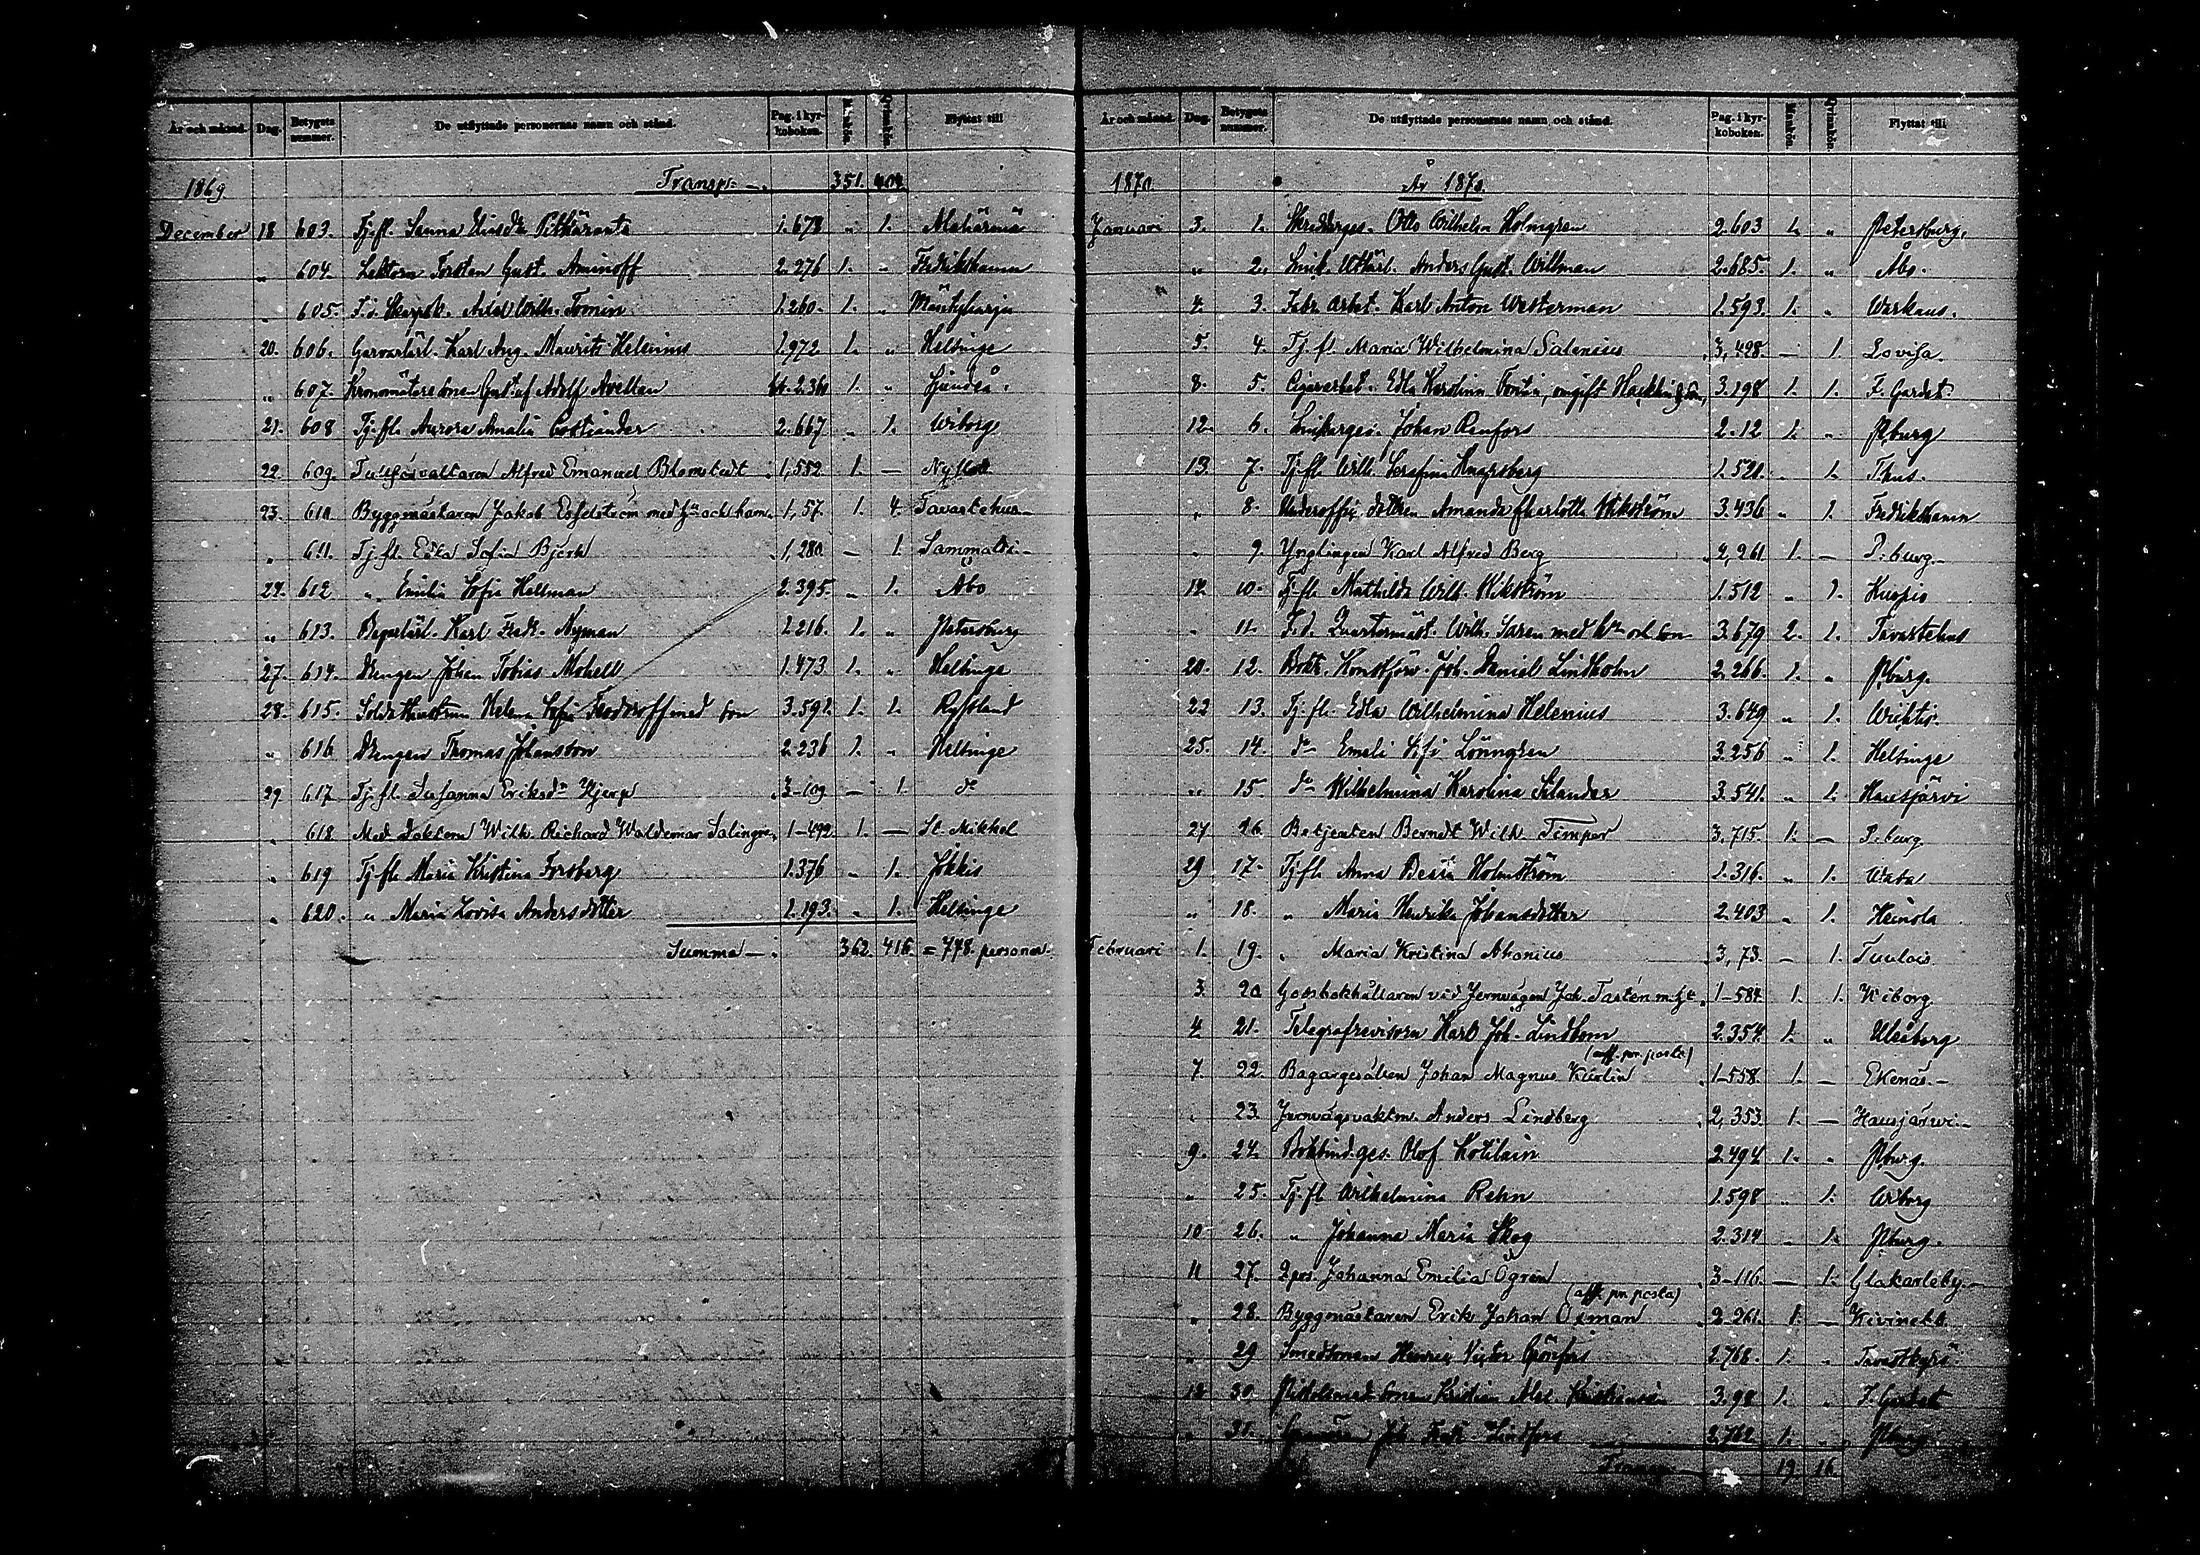 År och månad. Dag. Betygets nummer. De utflyttade personernas namn och stånd. Pag. i kyrkoboken. Mankön. Qvinkön. Flyttat till
1869. Transp. 351. 404.
December 18 603. Tj.fl. Sanna 1.678 " 1.
" 604. Lektorn Torsten Gust. Aminoff 2.276 1. " Fredrikshamn
" 605. Axel Wilh. Fomin 1.260. 1. " Mäntyharju
20. 606. Karl Aug. Maurits Helenius 1.972 1. " Helsinge
" 607. Gustaf Adolf Avellan 1. " Sjundeå.
21. 608 Tj.fl. Aurora Amalia Costiander 2.667 " 1. Wiborg
22. 609. Alfred Emanuel Blomstedt 1,552 1. —
23. 610 Byggmästaren Jakob med h:u och barn. 1,57. 1. 4. Tavastehus
" 611. Tj.fl. Edla Sofia Björk 1,280 — 1. Sammatti
24. 612 " Emilia Sofia Hellman 2.395. " 1. Åbo
" 613. Karl Fredr. Nyman 1.216. 1. " Petersburg
27. 614. Drengen Johan Tobias Mohell 1.473 1. " Helsinge
28. 615. Helena Sofia Feodoroff med son 3.592. 1. 1. Ryssland
" 616 Drengen Thomas Johansson 2.236 1. " Helsinge
29 617 Tj.fl. Susanna Eriksd:r 3-109 — 1. d:o
" 618. Med. Doktorn Wilh. Richard Waldemar Salingre, 1-492. 1. — St. Mikkel
" 619 Tj.fl. Maria Kristina Forsberg 1.376 " 1. Jokkis
" 620. " Maria Lovisa Andersdotter 1.193. " 1. Helsinge
Summa — 362. 416. = 778. personer.
År och månad. Dag. Betygets nummer. De utflyttade personernas namn och stånd. Pag. i kyrkoboken. Mankön. Qvinkön. Flyttat till
1870 År 1870.
Januari 3. 1. Otto Wilhelm Holmgren 2.603 1. " Petersburg.
" 2. Anders Gust. Willman 2.685. 1. " Åbo.
4. 3. Karl Anton Westerman 1.593. 1. " Warkaus.
5. 4. Tj.fl. Maria Wilhelmina Salenius 3,428. — 1. Lovisa.
8. 5. Cigararbet. Edla Karolina 3.198 1. 1. F. Gardet.
12. 6. Johan Renfors 2.12 1. " P.burg
13. 7. Tj.fl. Wilh. Serafina 1.521. " 1. T.hus.
" 8. Underoffic. dottren Amanda Charlotta Wikström 3.436 " 1. Fredrikshamn
" 9. Ynglingen Karl Alfred Berg 2,261 1. — P.burg.
14. 10. Tj.fl. Mathilda Wilh. Wikström 1.512 " 1. Kuopio
" 11. F.d. Quartermäst. Wilh. Saren med h:u och son 3.679 2. 1. Tavastehus
20. 12. Joh. Daniel Lindholm 2.266. 1. " P.burg.
22 13. Tj.fl. Edla Wilhelmina Helenius 3.649 " 1. Wichtis.
25. 14. d:o Emeli Sofi Lönngren 3.256 " 1. Helsinge
" 15. d:o Wilhelmina Karolina Silander 3.541. " 1. Hausjärvi
27 16. Betjenten Berndt Wilh. Timper 3,715. 1. — P.burg
29 17. Tj.fl. Anna Beata Holmström 1.316. " 1. Wasa
" 18. " Maria Henrika Johansdotter 2.403 " 1. Heinola
Februari 1. 19. " Maria Kristina Ahonius 3,73. — 1. Tuulois.
3. 20 Godsbokhållaren vid Jernvägen Joh. Tarlén m. h:u 1-584. 1. 1. Wiborg
4 21. Telegrafrevisorn Karl Joh. Lindbom 2.354. 1. " Uleåborg
(aff. pr. posta)
7. 22. Johan Magnus Kurlin 1-558. 1. — Ekenäs.
" 23. Jernvägsvaktm. Anders Lindberg 2,353. 1. — Hausjärwi.
9. 24. Bokbind.ges. Olof Kotilain 2.494 1. " P.burg.
" 25. Tj.fl. Wilhelmina Rehn 1.598 " 1. Wiborg
10 26. " Johanna Maria Skog 2.314 " 1. P.burg.
11 27. Johanna Emilia Ögren 3-116. — 1. Glakarleby.
(aff. pr. posta)
" 28. Byggmästaren Erik Johan Öman 2.261. 1. — Kivineb.
" 29 Smedsonen Henric Victor Grönfors 2.768. 1. " Tavastkyrö
12 30. Kristian Alex. 3.98 1. " F. Gardet
" 31. Joh. Fredr. Lindfors 2.762 1. " P.burg.
Transp. 19 16